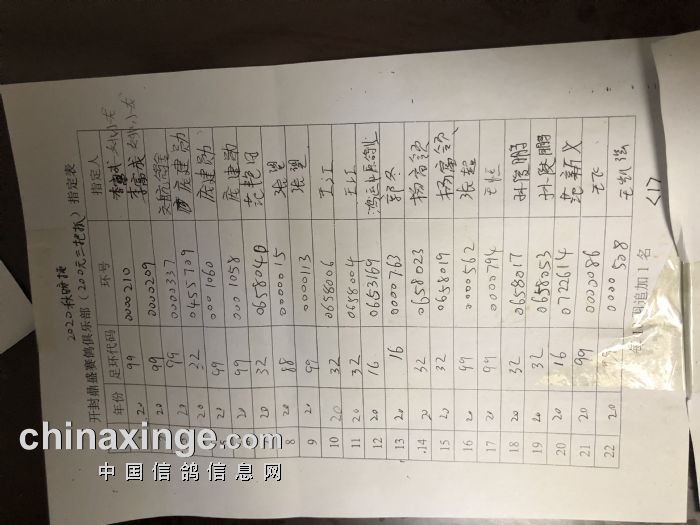 2020秋
开封鼎盛赛鸽俱乐部（200元二把抓）指定表
年份 足环代码 环号 指定人
20 99 0000210 李富成
20 99 0000209 李富成
20 99 0000337
20 22 0455709 庞建勋
20 99 0001060 庞建勋
20 99 0001058 庞建勋
20 32 范艳日
8 20 88 0000015 张望
9 20 99 0000113 张望
10 20 32 0658006 王江
11 20 32 0658004 王江
12 20 16 0653169
13 20 16 0000763 郭冬
14 20 32 0658023 杨富领
15 20 32 0658019 杨富领
16 20 99 0000562 张超
17 20 99 0000794 王恒
18 20 32 0658017 孙俊鹏
19 20 32 0658053 孙俊鹏
20 20 16 0722614 范新义
21 20 99 0000086 王飞
22 20 0000508 王凯强
追加1名
<17
chinaxinge.com
中国信鸽信息网